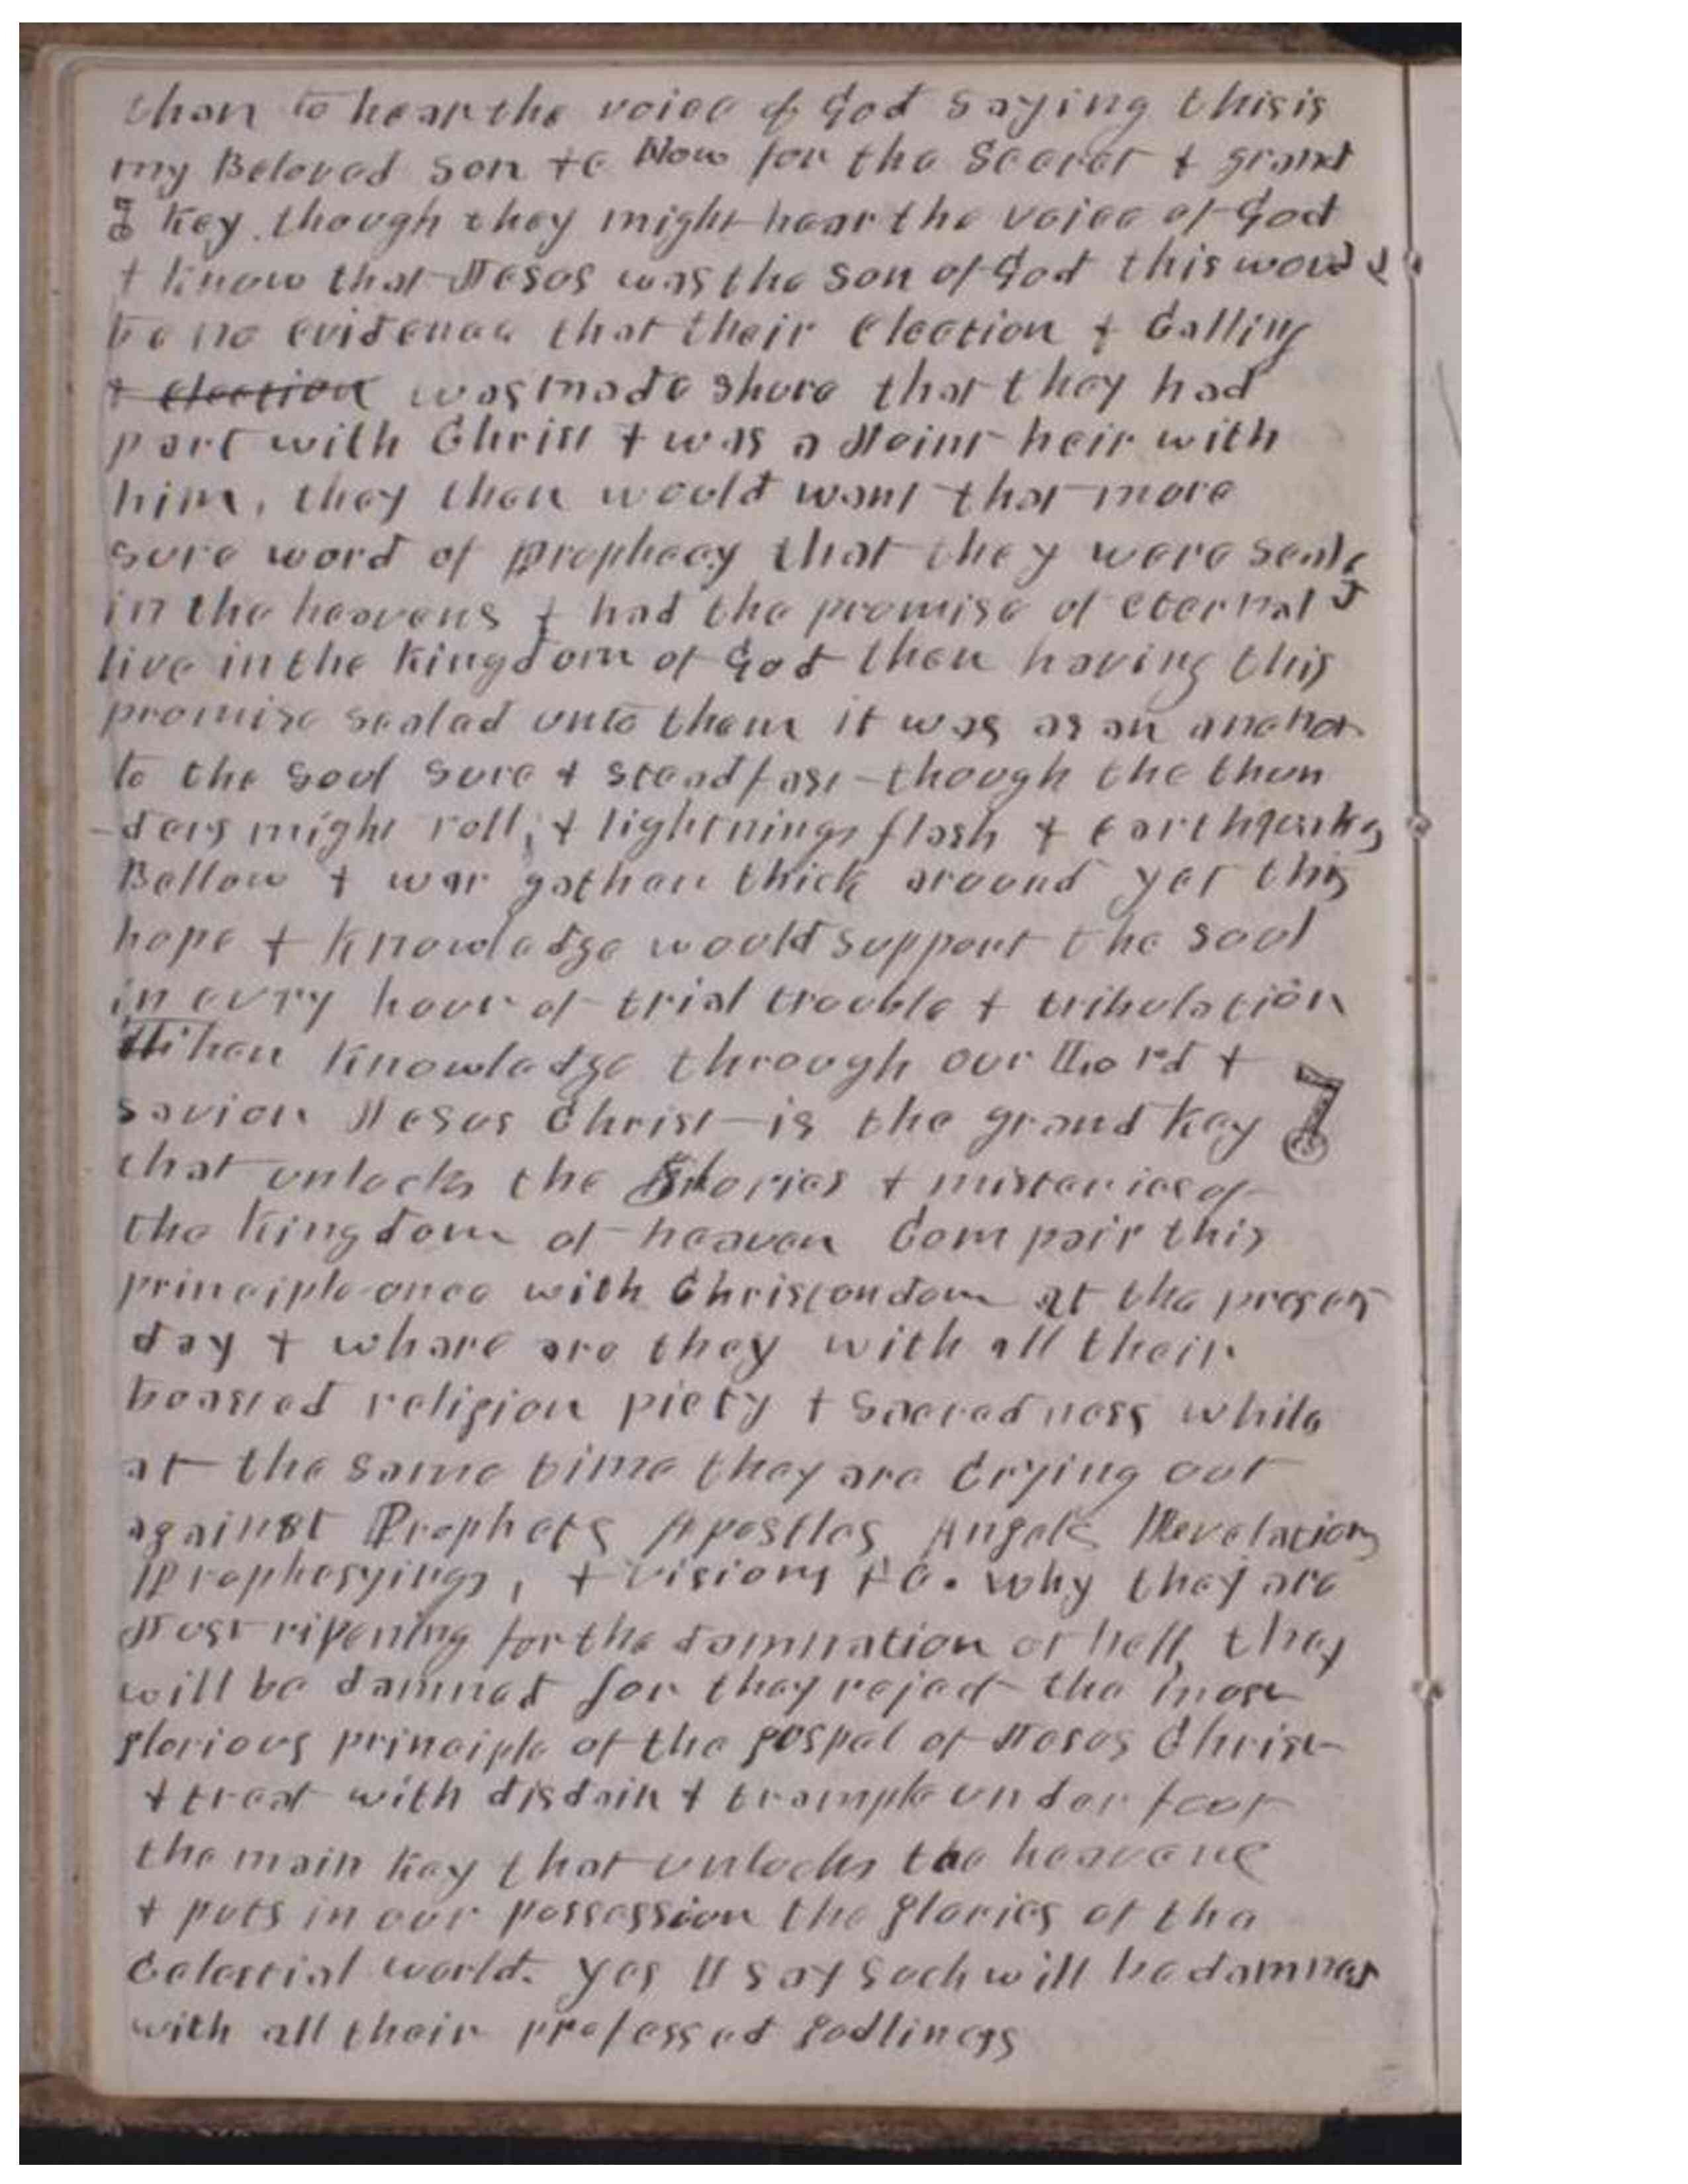 than to hear the voice of God saying this is
my Beloved Son &c Now for the Secret & grand
key though they might hear the voice of God
& know that Jesus was the Son of God this would
be no evidence that their Election & Calling
& election was made shure that they had
part with Christ & was a Joint heir with
him, they then would want that more
sure word of Prophecy that they were seald
in the heavens & had the promise of eternal
live in the Kingdom of God then having this
promise sealed unto them it was as an anchor
to the soul sure & steadfast though the thun
-ders might roll, & lightnings flash & earthquakes
Bellow & war gather thick around yet this
hope & knowledge would support the soul
in evry hour of trial trouble & tribulation
Then knowledge through our Lord &
savior Jesus Christ is the grand key
that unlocks the glories & misteries of
the Kingdom of heaven Compair this
principle once with Christendom at the present
day & whare are they with all their
boasted religion piety & sacredness while
at the same time they are Crying out
against Prophets Apostles Angels Revelations
Prophesyings, & Visions &c. why they are
Just ripening for the damnation of hell, they
will be damned for they reject the most
glorious principle of the gospel of Jesus Christ
& treat with disdain & trample under foot
the main key that unlocks the heavens
& puts in our possession the glories of the
Celestial world. yes I say such will be damned
with all their professed godliness